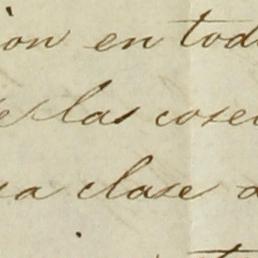 ion en tod
e las cose
sa clase d